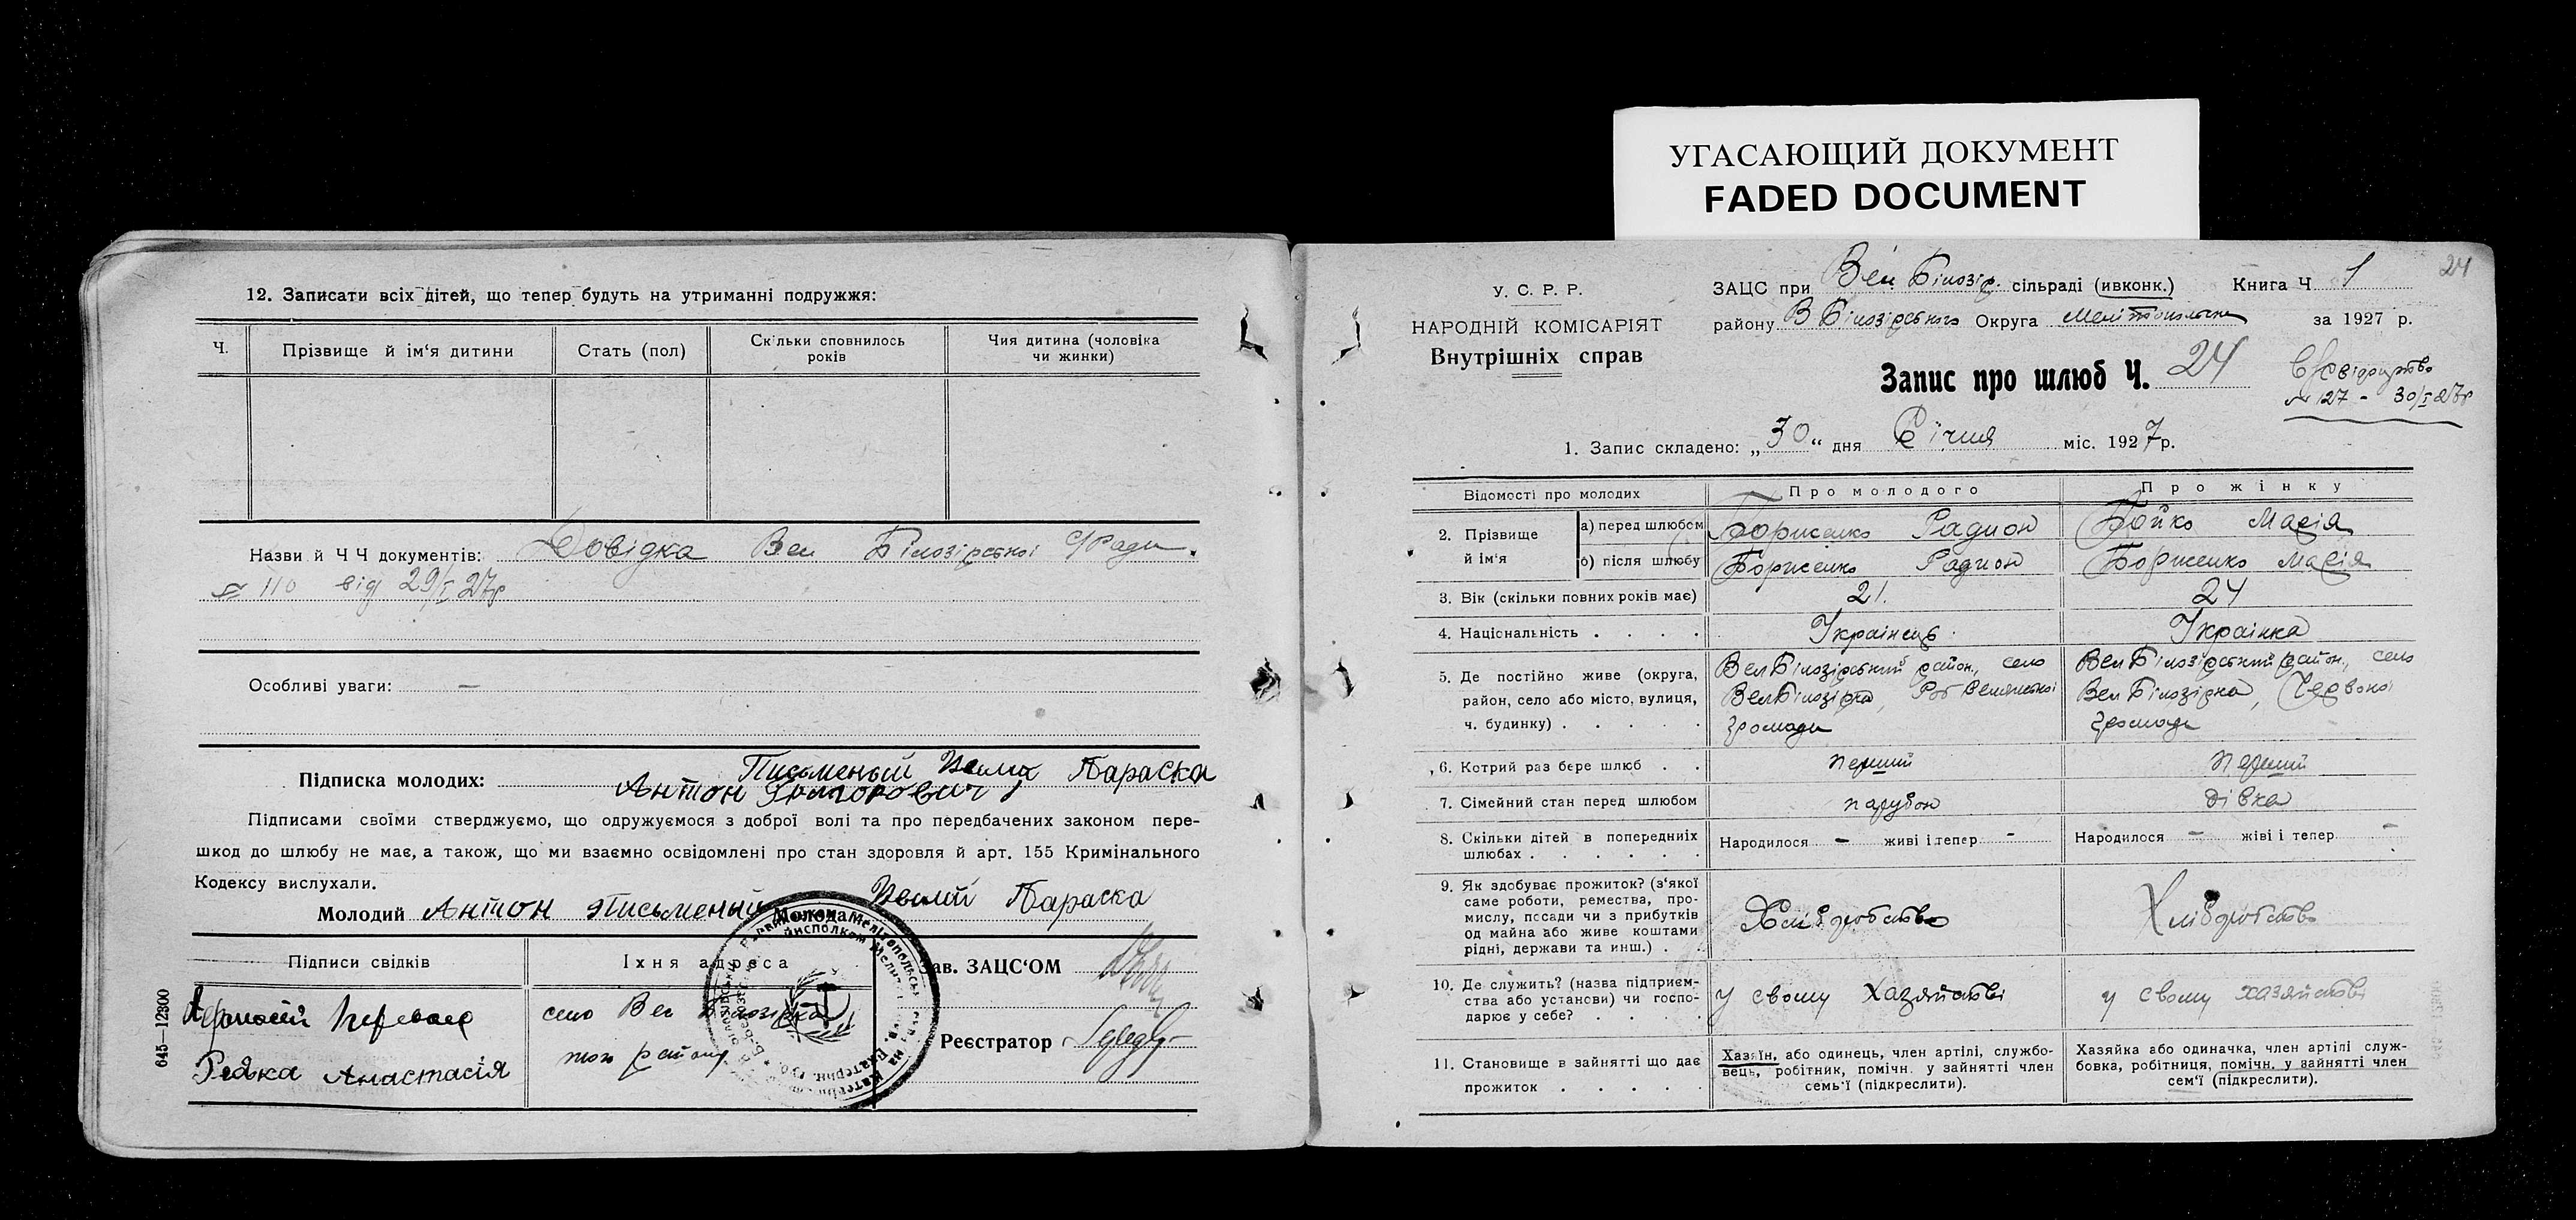 УГАСАЮЩИЙ ДОКУМЕНТ
FADED DOCUMENT
12. Записати всіх дітей, що тепер будуть на утриманні подружжя:
Ч.
Прізвище й ім‘я дитини
Стать (пол)
Скільки сповнилось років
Чия дитина (чоловіка чи жинки)
Назви й Ч Ч документів: Довідка Вел Білозірської С/Ради.
№ 110 від 29/I 27р
Особливі уваги: —
Підписка молодих: Письменый Параска
Антон Григорович
Підписами своїми стверджуємо, що одружуємося з доброї волі та про передбачених законом пере-
шкод до шлюбу не має, а також, що ми взаємно освідомлені про стан здоровля й арт. 155 Кримінального
Кодексу вислухали.
Молодий Антон Письменый Молода Параска
Підписи свідків
Їхня адреса
Зав. ЗАЦС‘ОМ
село Вел Білозірка
того району
Реєстратор
Редка Анастасія
645—12300
24
У. С. Р. Р.
НАРОДНІЙ КОМІСАРІЯТ
Внутрішніх справ
ЗАЦС при Вел Білозір. сільраді (ивконк.) Книга Ч 1
району В Білозірського Округа Мелітопольська за 1927 р.
Запис про шлюб Ч. 24
№ 127 - 30/I 27р
1. Запис складено: „30“ дня Січня міс. 1927 р.
Відомості про молодих
Про молодого
Про жінку
2. Прізвище й ім‘я
а) перед шлюбом
Борисенко Радион
Бойко Марія
б) після шлюбу
Борисенко Радион
Борисенко Марія
3. Вік (скільки повних років має)
21.
24
4. Національність . . . .
Українець
Українка
5. Де постійно живе (округа,
район, село або місто, вулиця,
ч. будинку) . . . . .
Вел Білозірський район, село
Вел Білозірка,
громади
Вел Білозірський район, село
Вел Білозірка, Червоної
громади
6. Котрий раз бере шлюб . .
перший
перший
7. Сімейний стан перед шлюбом
парубок
дівка
8. Скільки дітей в попередніх
шлюбах . . . . . .
Народилося — живі і тепер —
Народилося — живі і тепер —
9. Як здобуває прожиток? (з‘якої
саме роботи, ремества, про-
мислу, посади чи з прибутків
од майна або живе коштами
рідні, держави та инш.) . .
Хліборобство
Хліборобство
10. Де служить? (назва підприєм-
ства або установи) чи госпо-
дарює у себе? . . . .
У свому хазяйстві
у свому хазяйстві
11. Становище в зайнятті що дає
прожиток . . . .
Хазяїн, або одинець, член артілі, службо-
вець, робітник, помічн. у зайнятті член
семь‘ї (підкреслити).
Хазяйка або одиначка, член артілі служ-
бовка, робітниця, помічн. у зайнятті член
сем‘ї (підкреслити).